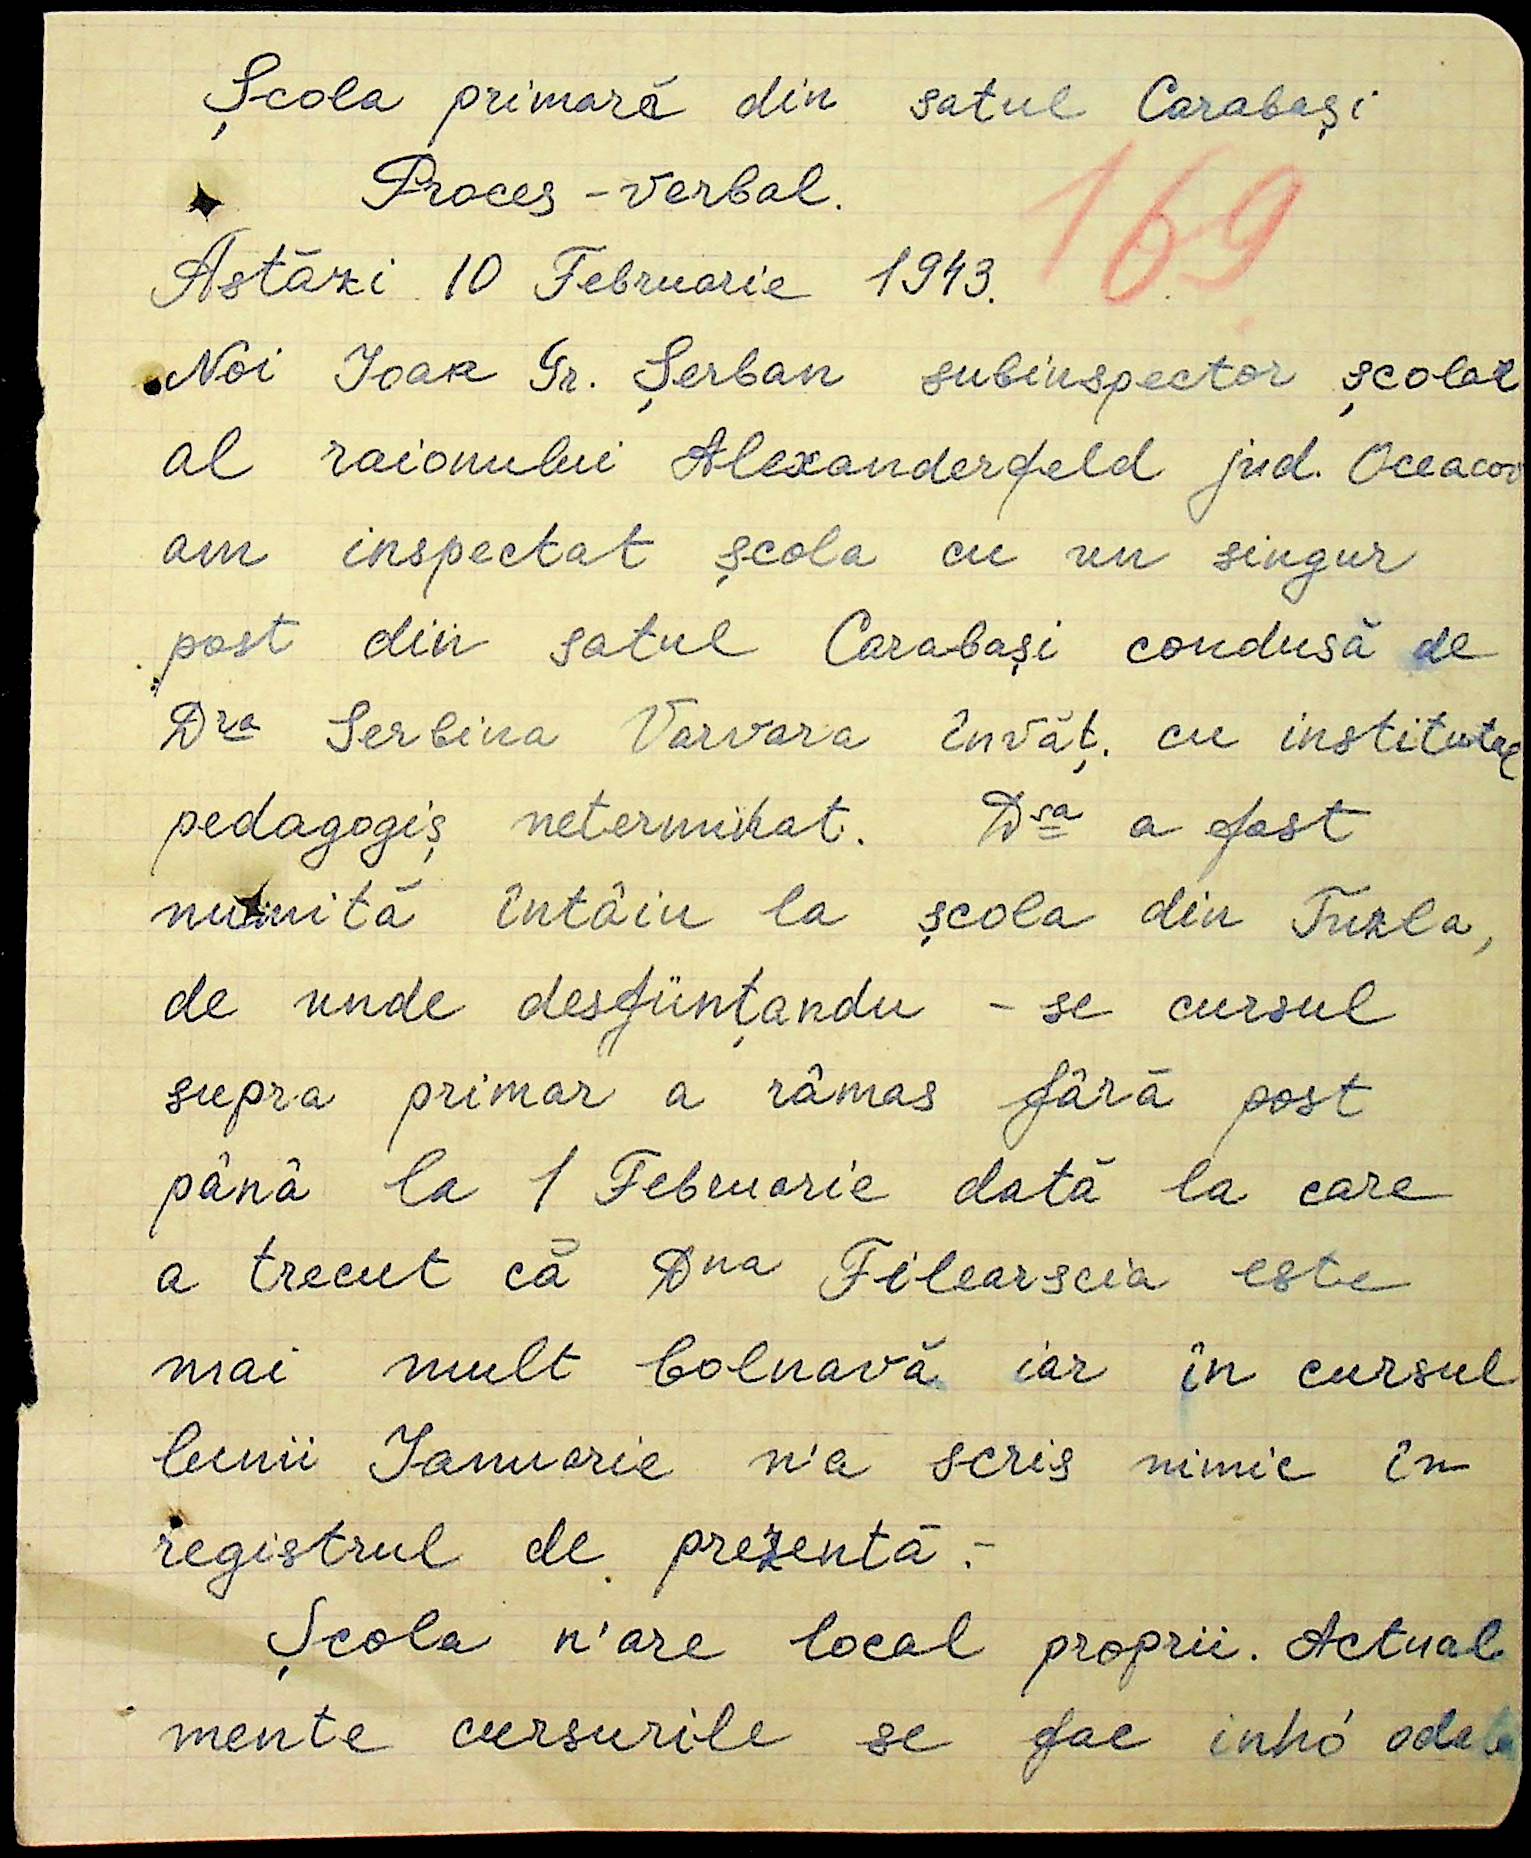 Școla primară din satul Carabași
Proces - verbal.
169
Astăzi 10 Februarie 1943.
Noi Ioan Gr. Șerban subinspector școlar
al raionului Alexanderfeld jud. Oceacov
am inspectat școla cu un singur
post din satul Carabași condusă de
Dra Serbina Varvara învăț. cu institutul
pedagogiș neterminat. Dsa a fost
numită întâiu la școla din Tuzla,
de unde desființandu - se cursul
supra primar a râmas fără post
pânâ la 1 Februarie dată la care
a trecut că Dna Filearscia este
mai mult bolnavă iar în cursul
lunii Ianuarie n'a scris nimic în
registrul de prezentă.-
Școla n'are local proprii. Actual
mente cursurile se fac